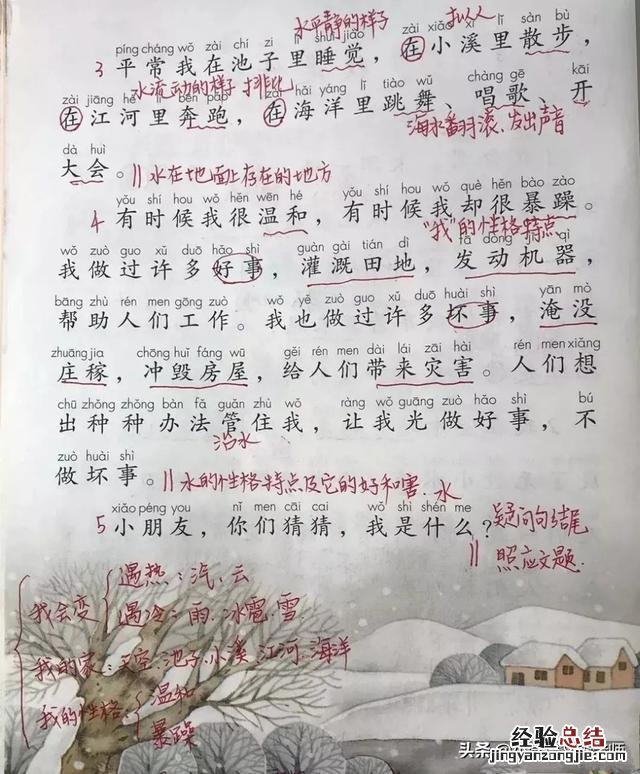 水平静的样子 拟人
píng cháng wǒ zài chí zi lǐ shuì jiào zài xiǎo xī lǐ sàn bù
3 平常我在池子里睡觉，在小溪里散步，
水流动的样子 排比
zài jiāng hé lǐ bēn pǎo zài hǎi yáng lǐ tiào wǔ chàng gē kāi
在江河里奔跑，在海洋里跳舞、唱歌、开
海水翻滚、发出声音
dà huì
大会。 ‖水在地面上存在的地方
yǒu shí hou wǒ hěn wēn hé yǒu shí hou wǒ què hěn bào zào
4 有时候我很温和，有时候我却很暴躁。
“我”的性格特点
wǒ zuò guo xǔ duō hǎo shì guàn gài tián dì fā dòng jī qì
我做过许多好事，灌溉田地，发动机器，
bāng zhù rén men gōng zuò wǒ yě zuò guo xǔ duō huài shì yān mò
帮助人们工作。我也做过许多坏事，淹没
zhuāng jia chōng huǐ fáng wū gěi rén men dài lái zāi hài rén men xiǎng
庄稼，冲毁房屋，给人们带来灾害。人们想
chū zhǒng zhǒng bàn fǎ guǎn zhù wǒ ràng wǒ guāng zuò hǎo shì bú
出种种办法管住我，让我光做好事，不
治水
zuò huài shì
做坏事。 ‖水的性格特点及它的好和害 水
xiǎo péng you nǐ men cāi cai wǒ shì shén me
5 小朋友，你们猜猜，我是什么？ 疑问句结尾
‖ 照应文题.
我会变 遇热：汽、云
遇冷：雨、冰雹、雪
我的家：天空、池子、小溪、江河、海洋
我的性格 温和
暴躁
经验总结
头条
师
jingyanzongjie.com